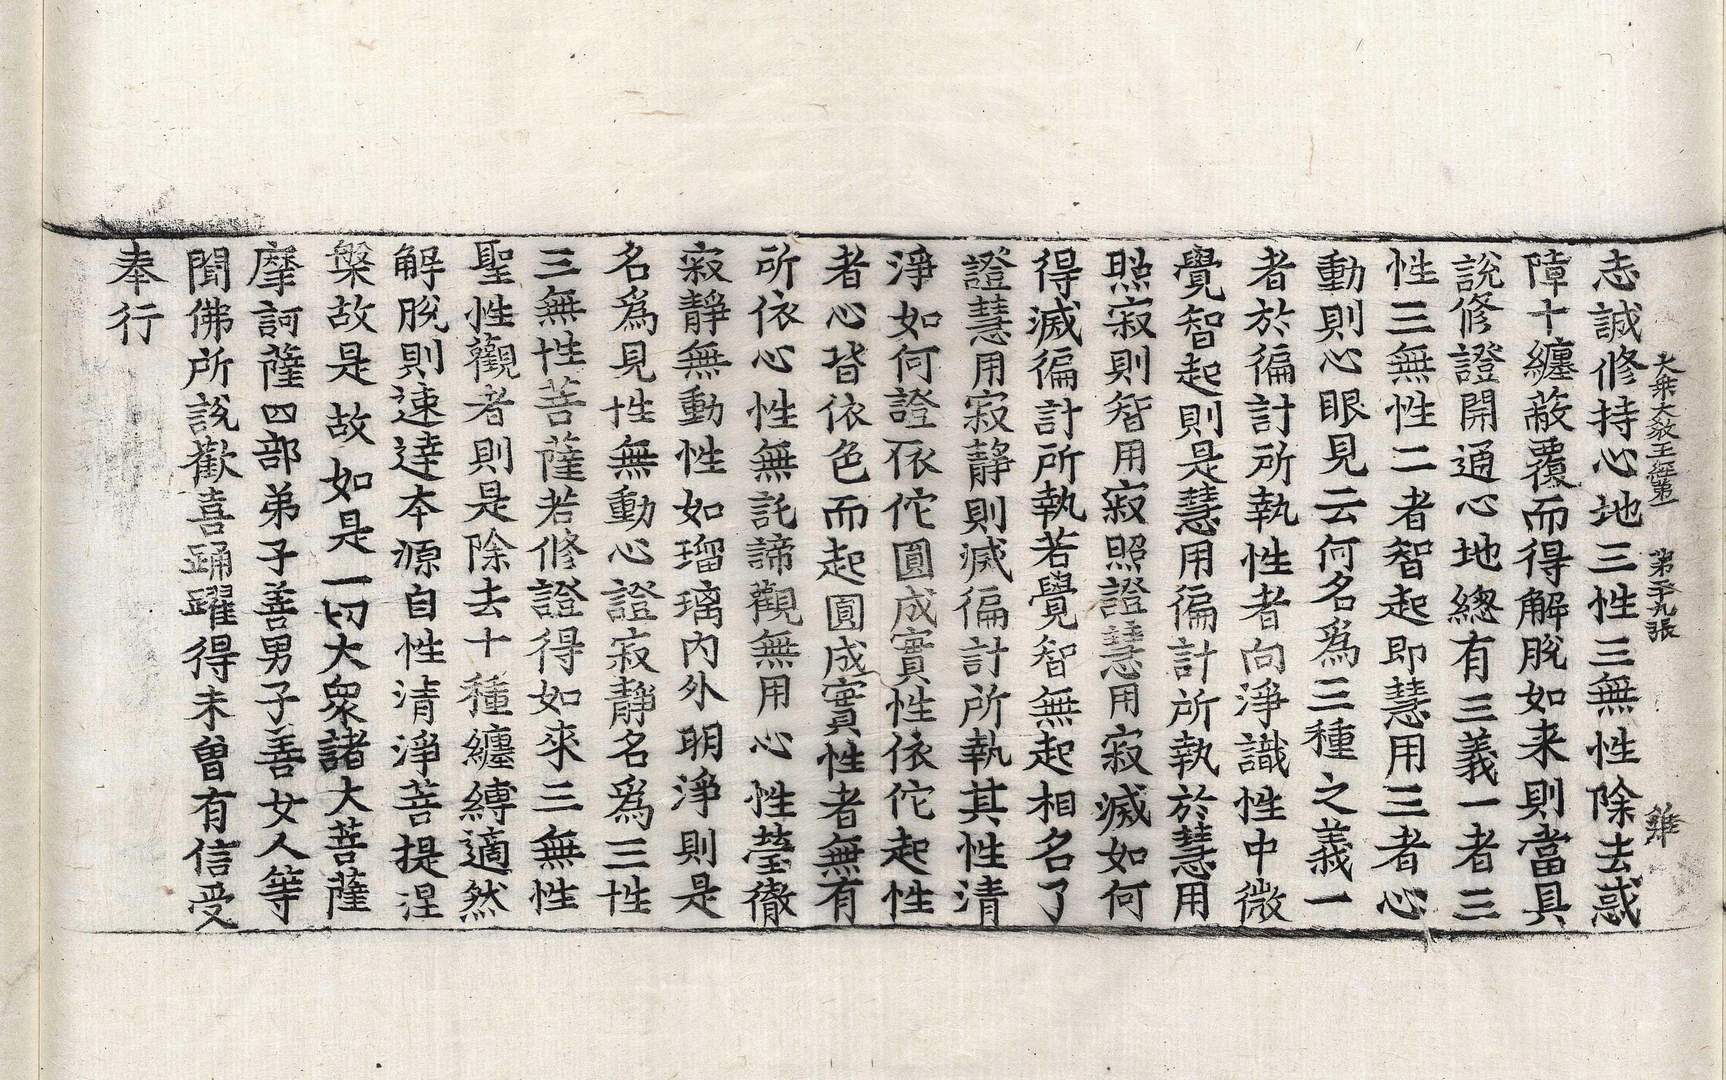 大乘大教王經第一　第二十九張　雞
志誠修持心地三性三無性除去惑
障十纏蔽覆而得解脫如来則當具
說修證開通心地緫有三義一者三
性三無性二者智起即慧用三者心
動則心眼見云何名爲三種之義一
者於徧計所執性者向淨識性中微
覺智起則是慧用徧計所執於慧用
照寂則智用寂照證慧用寂滅如何
得滅徧計所執若覺智無起相名了
證慧用寂靜則滅徧計所執其性清
淨如何證依佗圓成實性依佗起性
者心皆依色而起圓成實性者無有
所依心性無託諦觀無用心性瑩徹
寂靜無動性如瑠璃內外明淨則是
名爲見性無動心證寂靜名爲三性
三無性菩薩若修證得如來三無性
聖性觀者則是除去十種纏縛適然
解脫則速達本源自性清淨菩提涅
槃故是故如是一切大衆諸大菩薩
摩訶薩四部弟子善男子善女人等
聞佛所說歡喜踊躍得未曾有信受
奉行